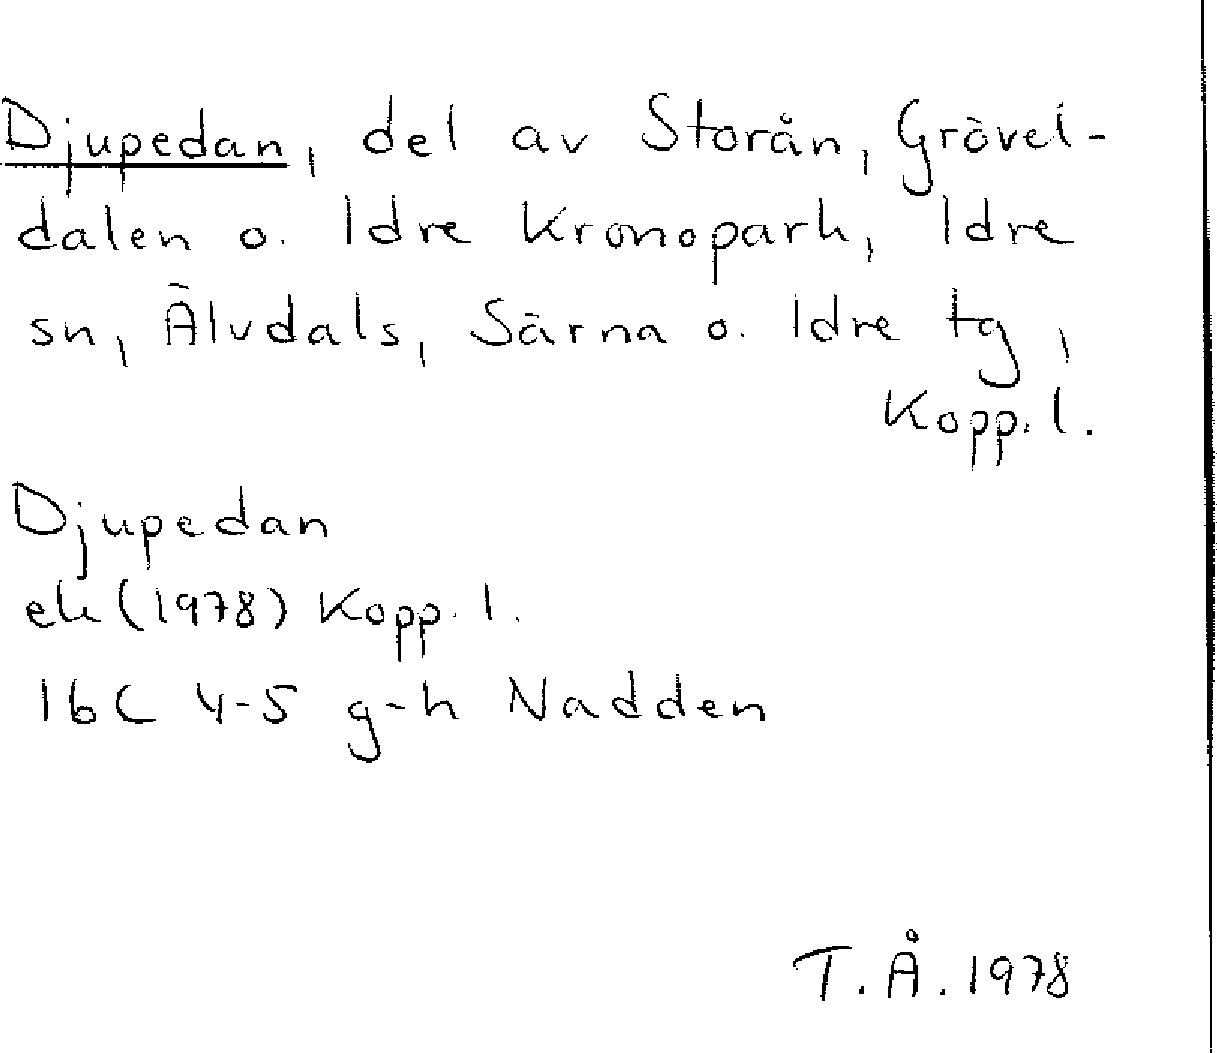 Djupedan, del av Storån, Grövel-
dalen o. Idre Kronopark, Idre
sn, Älvdals, Särna o. Idre tg,
Kopp. l.
Djupedan
ek (1978) Kopp. l.
16C 4-5 g-h Nadden
T.Å. 1978